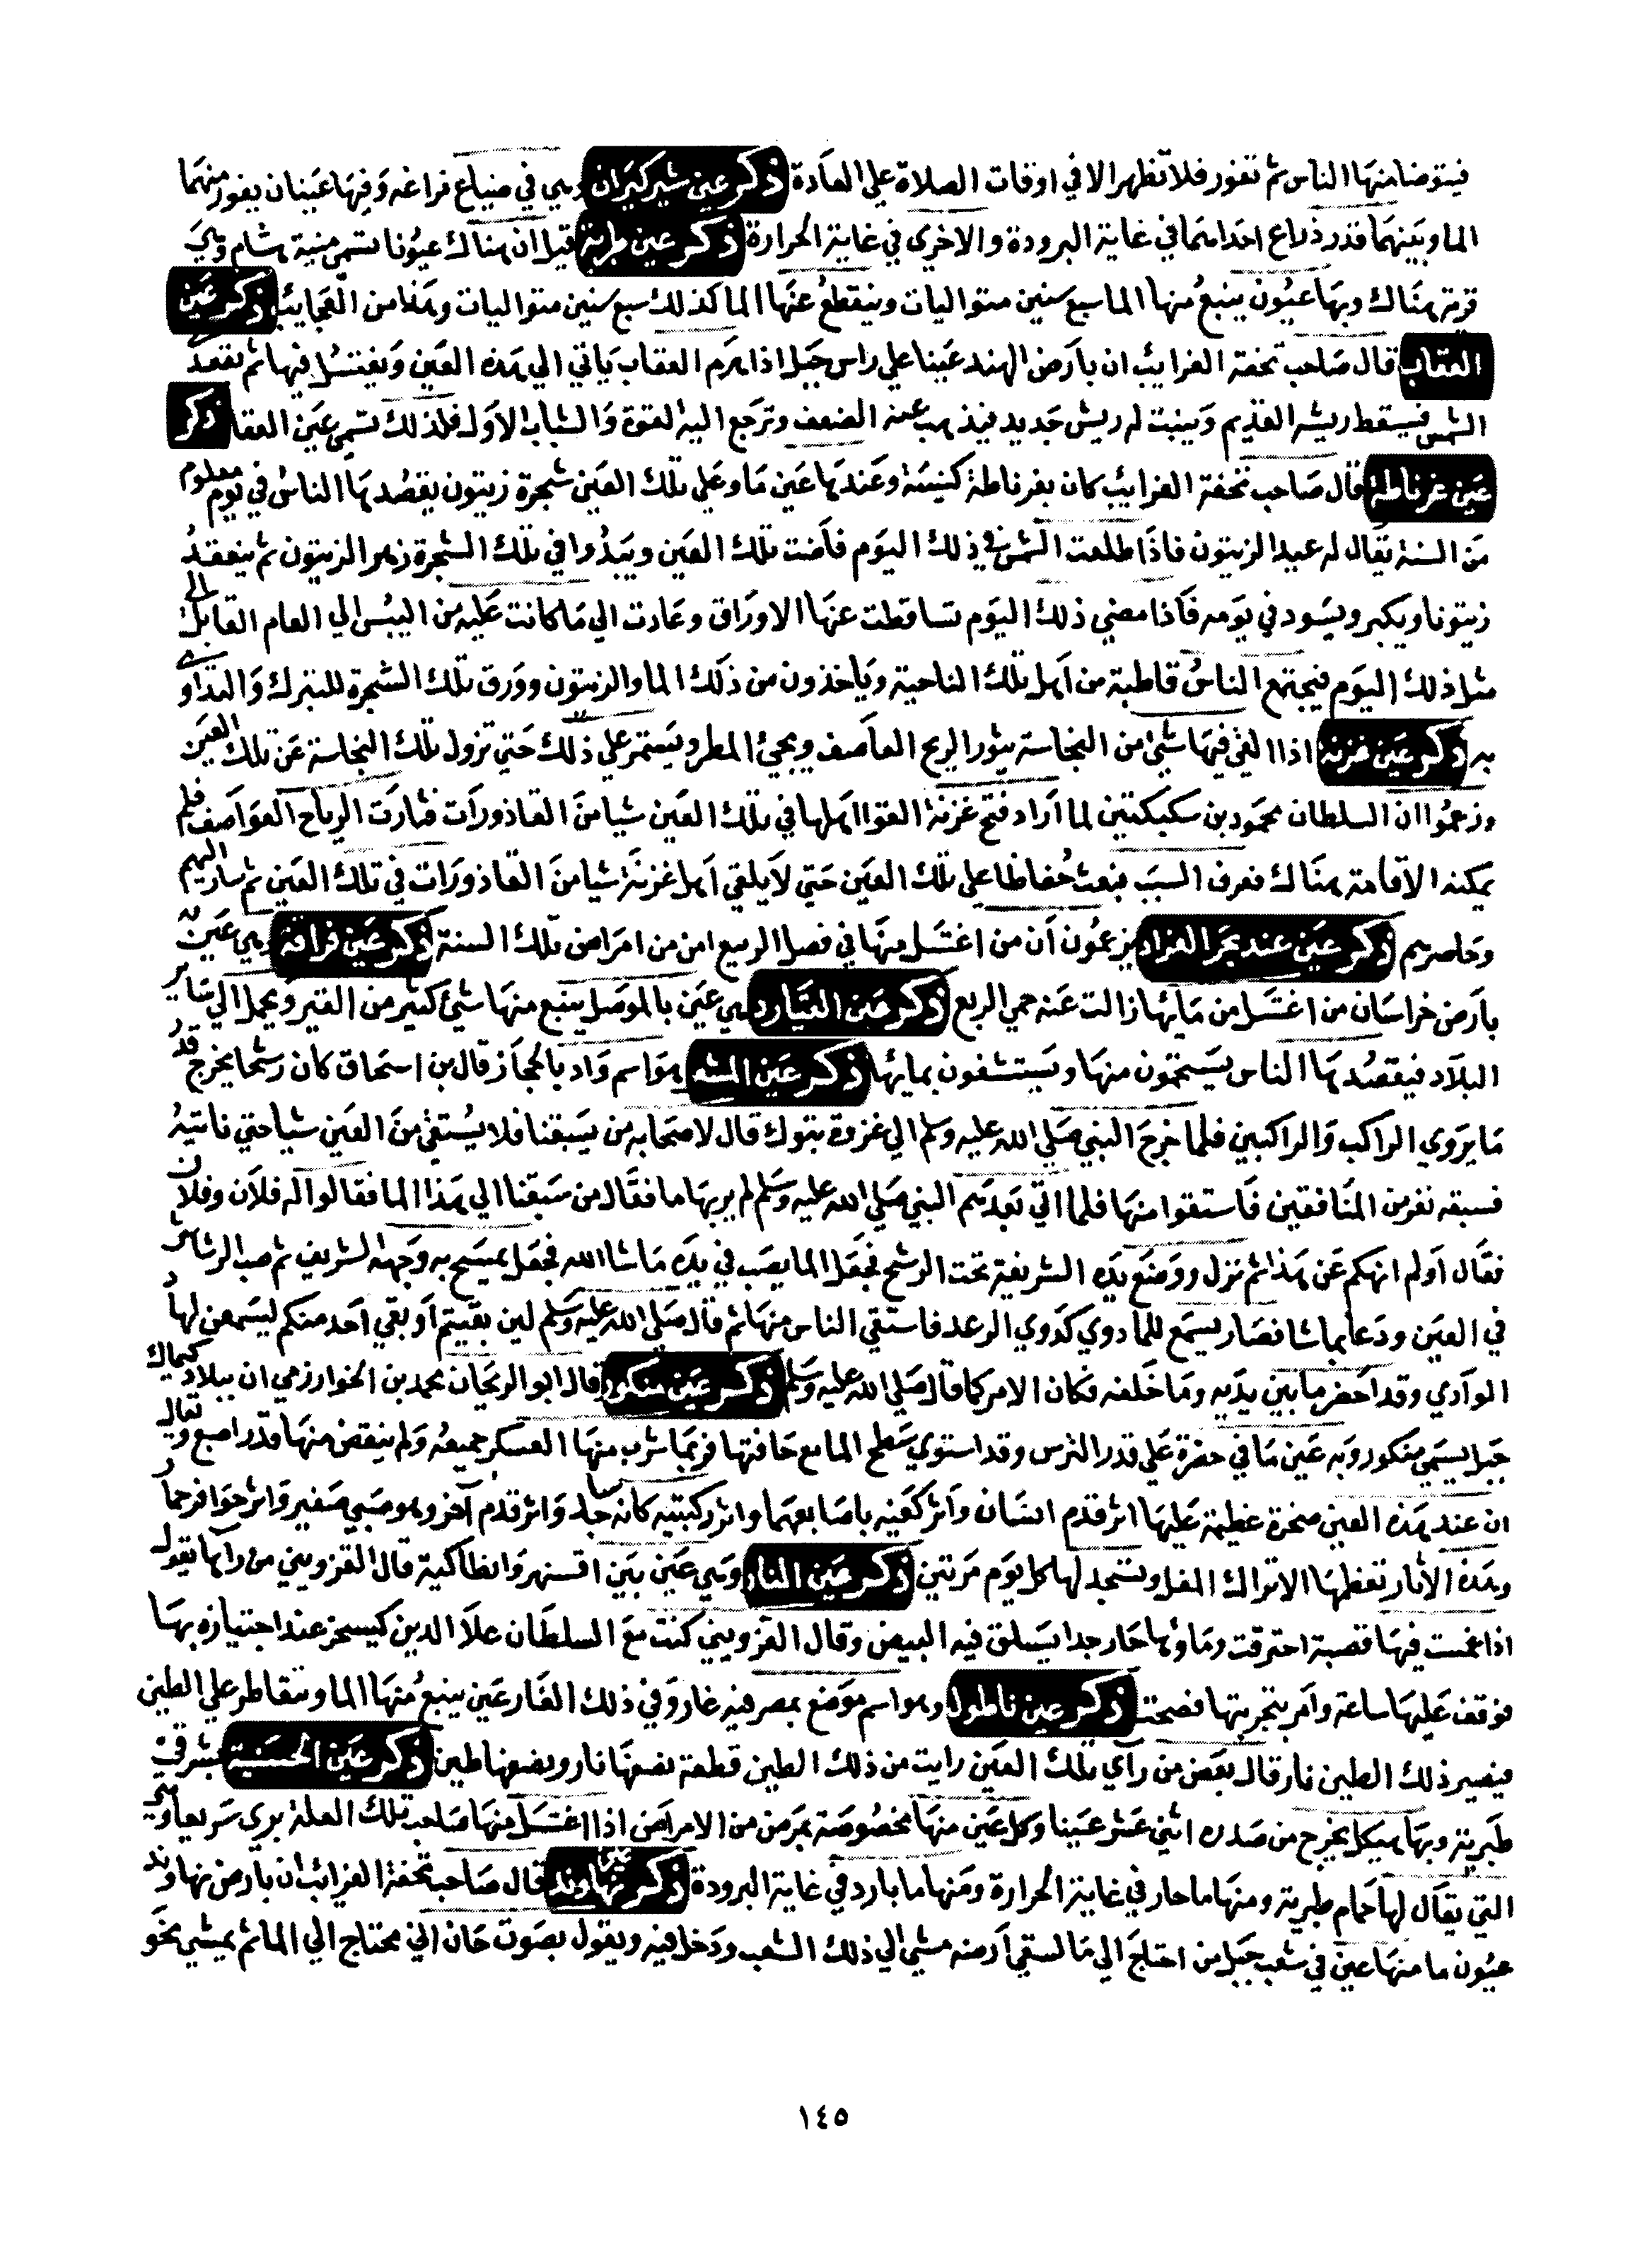 فيتوضا منها الناس ثم تغور فلا تظهر الا في اوقات الصلاة علي العادة ذكر عين شيركيران وهي في ضياع فراغه وفيها عينان يفور منهما
الما وبينهما قدر ذراع احداهما في غاية البرودة والاخري في غاية الحرارة ذكر عين طبرية قيل ان هناك عيونا تسمي منية هشام وهي
قرية هناك وبها عيون ينبع منها الما سبع سنين متواليات وينقطع عنها الما كذلك سبع سنين متواليات وهذا من العجايب ذكر عين
العقاب قال صاحب تحفة الغرايب ان بارض الهند عينا علي راس جبل اذا هرم العقاب ياتي الي هذه العين ويغتسل فيها ثم يقعد
الشمس فيسقط ريشه القديم وينبت له ريش جديد فيذهب عنه الضعف وترجع اليه القوة والشباب الاول فلذلك تسمي عين العقا ذكر
عين غرناطة قال صاحب تحفة الغرايب كان بغرناطة كنيسة وعندها عين ما وعلي تلك العين شجرة زيتون يقصدها الناس في يوم معلوم
من السنة يقال له عيد الزيتون فاذا طلعت الشمس في ذلك اليوم فاضت تلك العين ويبدوا في تلك الشجرة زهر الزيتون ثم ينعقد
زيتونا ويكبر ويسود في يومه فاذا مضي ذلك اليوم تساقطت عنها الاوراق وعادت الي ما كانت عليه من اليبس الي العام القابل الي
مثل ذلك اليوم فيجتمع الناس قاطبة من اهل تلك الناحية وياخذون من ذلك الما والزيتون وورق تلك الشجرة للتبرك والتداوي
به ذكر عين غزنة اذا القي فيها شيئ من النجاسة يثور الريح العاصف ويجيئ المطر ويستمر علي ذلك حتي تزول تلك النجاسة عن تلك العين
وزعموا ان السلطان محمود بن سكبكتين لما اراد فتح غزنة القوا اهلها في تلك العين شيا من القاذورات فثارت الرياح العواصف فلم
يمكنه الاقامة هناك فعرف السبب فبعث حفاظا علي تلك العين حتي لا يلقي اهل غزنة شيا من القاذورات في تلك العين ثم سار اليهم
وحاصرهم ذكر عين عند نحر الفراد يزعمون ان من اغتسل منها في فصل الربيع امن من امراض تلك السنة ذكر عين فراقة وهي عين
بارض خراسان من اغتسل من مائها زالت عنه حمي الربع ذكر عين القيارة هي عين بالموصل ينبع منها شيئ كثير من القير ويحمل الي ساير
البلاد فيقصدها الناس يستحمون منها ويستشفون بمائها ذكر عين المشقر هو اسم واد بالحجاز قال بن اسحاق كان رشحا يخرج قدر
ما يروي الراكب والراكبين فلما خرج النبي صلي الله عليه وسلم الي غزوة بتوك قال لاصحابه من يسبقنا فلا يستقي من العين شيا حتي ناتيه
فسبقه نفر من المنافقين فاستقوا منها فلما اتي بعدهم النبي صلي الله عليه وسلم لم ير بها ما فقال من سبقنا الي هذا الما فقالوا له فلان وفلان
فقال اولم انهكم عن هذا ثم نزل ووضع يده الشريفة تحت الرشح فجعل الما يصب في يده ما شا الله فجعل يمسح به وجهه الشريف ثم صب الرشاش
في العين ودعا بما شا فصار يسمع للما دوي كدوي الرعد فاستقي الناس منها ثم قال صلي الله عليه وسلم لين بقيتم او بقي احد منكم ليسمعن لهاد
الوادي وقد اخضر ما بين يديه وما خلفه فكان الامر كما قال صلي الله عليه وسلم ذكر عين منكور قال ابو الريحان محمد بن الخوارزمي ان ببلاد كيماك
جبل يسمي منكور وبه عين ما في حفرة علي قدر الترس وقد استوي سطح الما مع حافتها فربما شرب منها العسكر جميعه ولم ينقص منها قدر اصبع ويقال
ان عند هذه العين صخرة عظيمة عليها اثر قدم انسان واثر كفيه باصابعهما واثر ركبتيه كانه ساجد واثر قدم اخر وهو صبي صغير واثر حوافر حمار
وهذه الاثار تعظمها الاتراك المغل وتسجد لها كل يوم مرتين ذكر عين النار وهي عين بين اقسنهر وانطاكية قال القزويني من راها يقول
اذا غمست فيها قصبة احترقت وماؤها حار جدا يسلق فيه البيض وقال القزويني كنت مع السلطان علا الدين كيسخز عند اجتيازه بها
فوقف عليها ساعة وامر بتجربتها فصحت ذكر عين ناطول وهو اسم موضع بمصر فيه غار وفي ذلك الغار عين ينبع منها الما ويتقاطر علي الطين
فيصير ذلك الطين فار قال بعض من راي تلك العين رايت من ذلك الطين قطعة نصفها فار ونصفها طين ذكر عين الحسنية بشرقي
طبرية وبها هيكل يخرج من صدره اثني عشر عينا وكل عين منها مخصوصة بمرض من الامراض اذا اغتسل منها صاحب تلك العلة بري سريعا وهي
التي يقال لها حمام طبرية ومنها ما حار في غاية الحرارة ومنها ما بارد في غاية البرودة ذكر عين نهاوند قال صاحب تحفة الغرائب ان بارض نهاوند
عيون ما منها عين في شعب جبل من احتاج الي ما لسقي ارضه مشي الي ذلك الشعب ودخل فيه ويقول بصوت حان اني محتاج الي الما ثم يمشي نحو
١٤٥